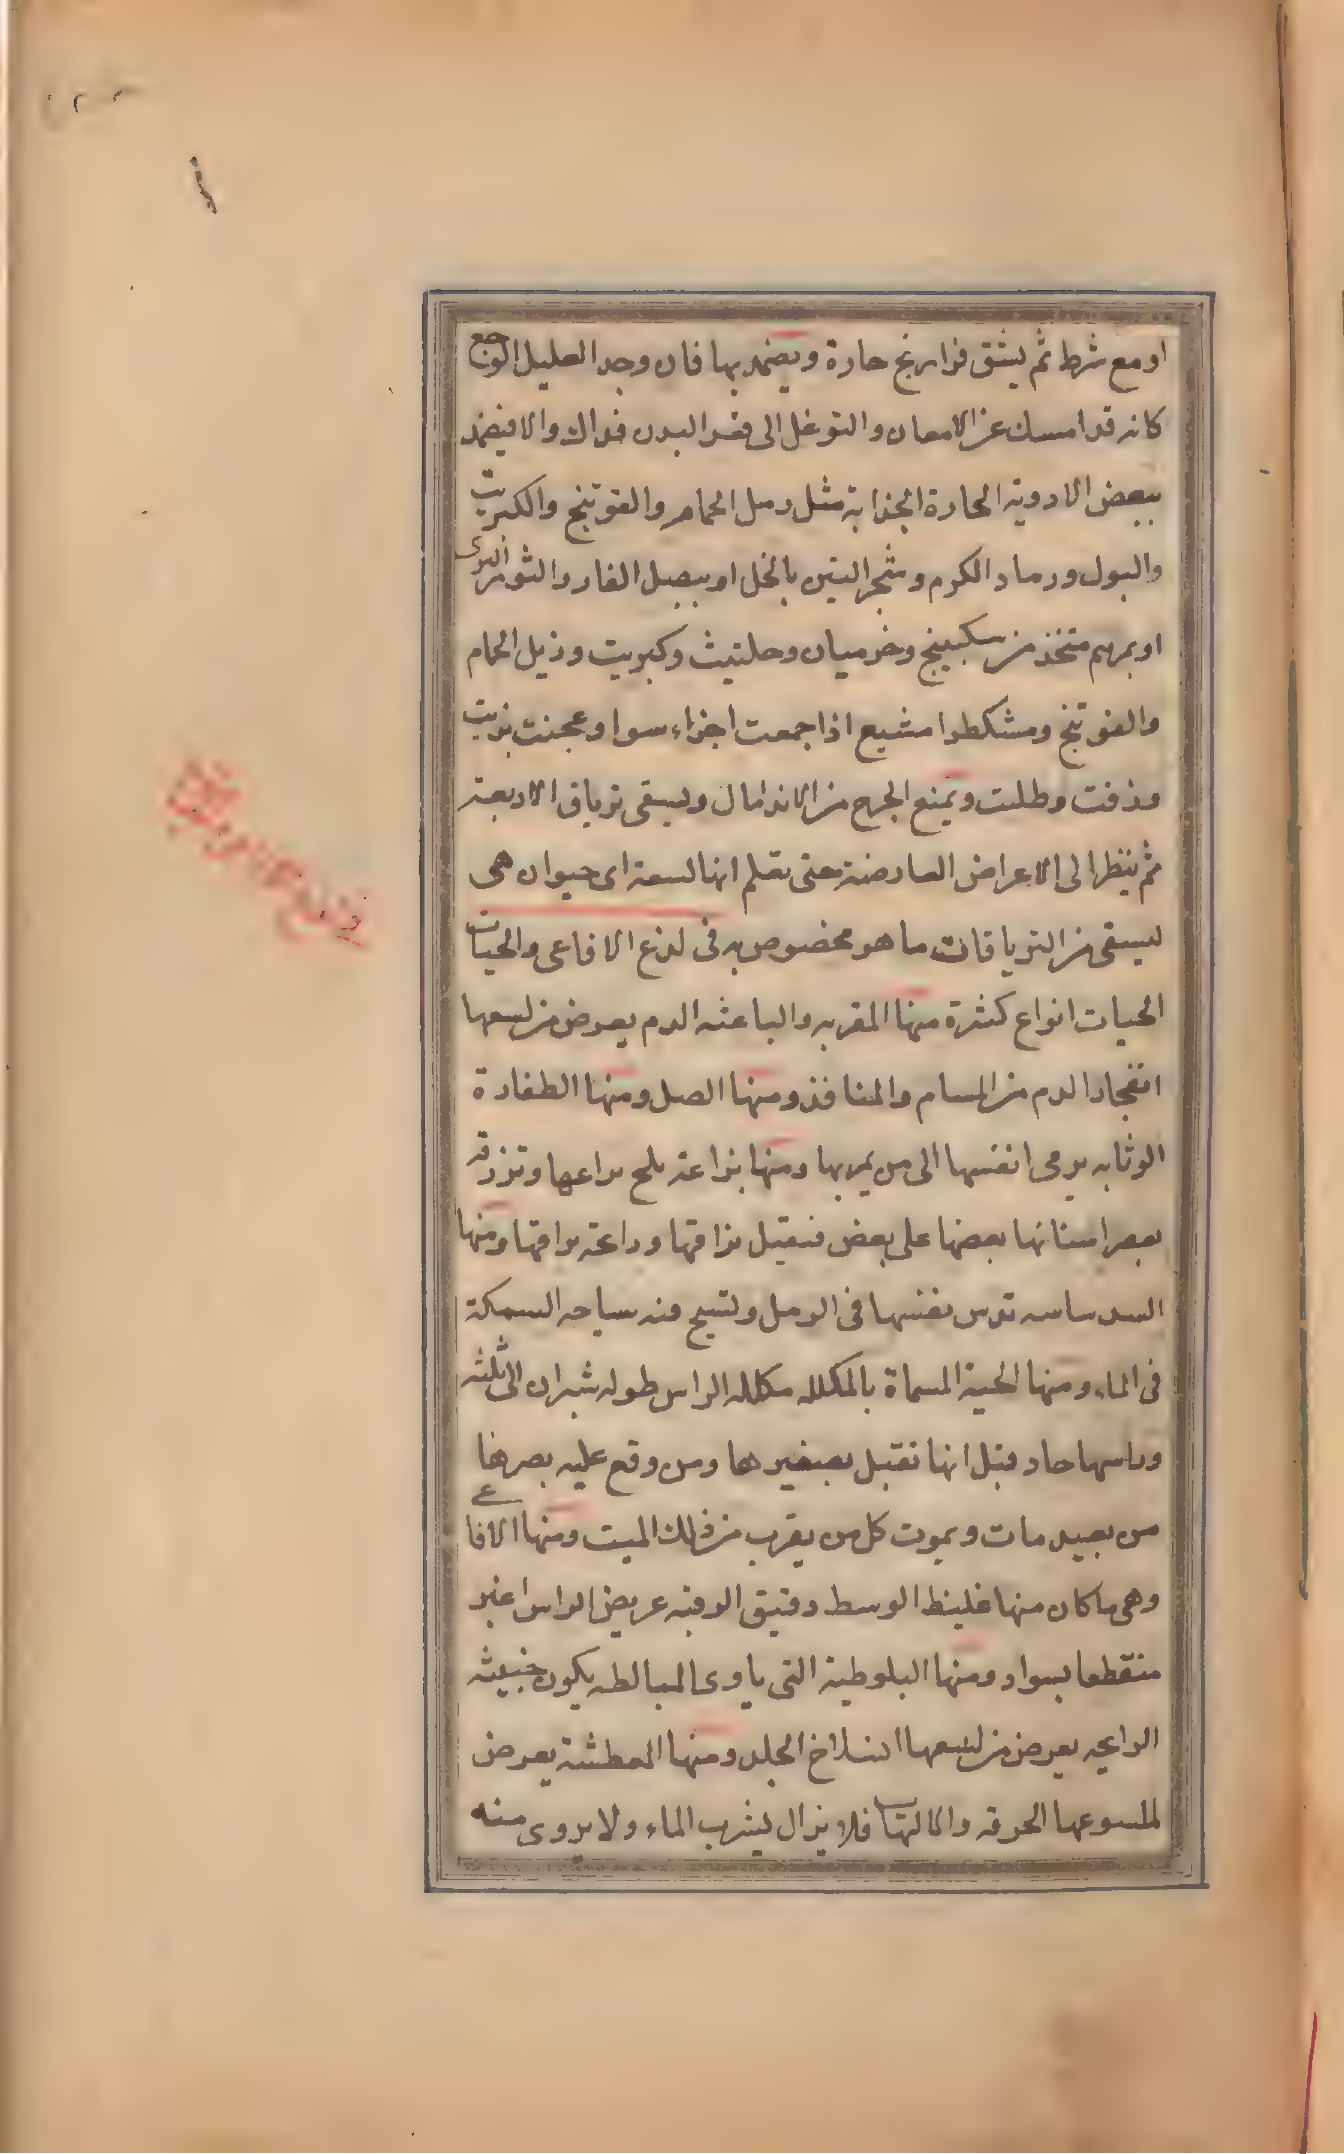 او مع شرط ثم يشق فراريج حارة ويضمد بها فان وجد العليل الوجع
كانه قد امسك عن الامعان والتوغل الى قعر البدن فذاك والا فيضمد
ببعض الادوية الحارة الجذابة مثل رمل الحمام والفوتنج والكبريت
والبول ورماد الكرم وشجر التين بالخل او ببصل الفار والثوم البرى
او بمرهم متخذ من سكبينج وخرميان وحلتيث وكبريت وذبل الحمام
والفوتنج ومشكطرا مشيع اذا جمعت اجزاء سوا وعجنت بزيت
وزفت وطلت ويمنع الجرح من الاندامال ويسقى ترياق الاربعة
ثم ينظر الى الاعراض العارضة حتى تعلم انها لسعة اى حيوان هى
ليسقى من الترياقات ما هو مخصوص به فى لدغ الافاعى والحيات
الحيات انواع كثيرة منها المقربه والباعثه الدم يعرض من لسعها
انفجار الدم من المسام والمنافذ ومنها الصل ومنها الطفارة
الوثابه يرمى انفسها الى من يمر بها ومنها بزاعة بلح براعها وتزرقه
بعصر اسنانها بعضها على بعض فيقتل بزاقها وراعحة براقها ومنها
السدساسه تدس نفسها فى الرمل وتسبح فيه سباحه السمكة
فى الماء ومنها الحية المسماة بالمكلله مكلله الراس طوله شبران الى ثلثه
وراسها حاد قيل انها تقتل بصفيرها ومن وقع عليه بصرها
من بعيد مات ويموت كل من يقرب من ذلك الميت ومنها الافاعى
وهى ما كان منها غليظ الوسط دقيق الرقبه عريض الراس اغبر
منقطعا بسواد ومنها البلوطية التى ياوى المبالطه يكون خبيثه
الرايحه يعرض من لسعها انسلاخ الجلد ومنها المعطشة يعرض
لملسوعها الحرقه والالتهاب فلا يزال يشرب الماء ولا يروى منه